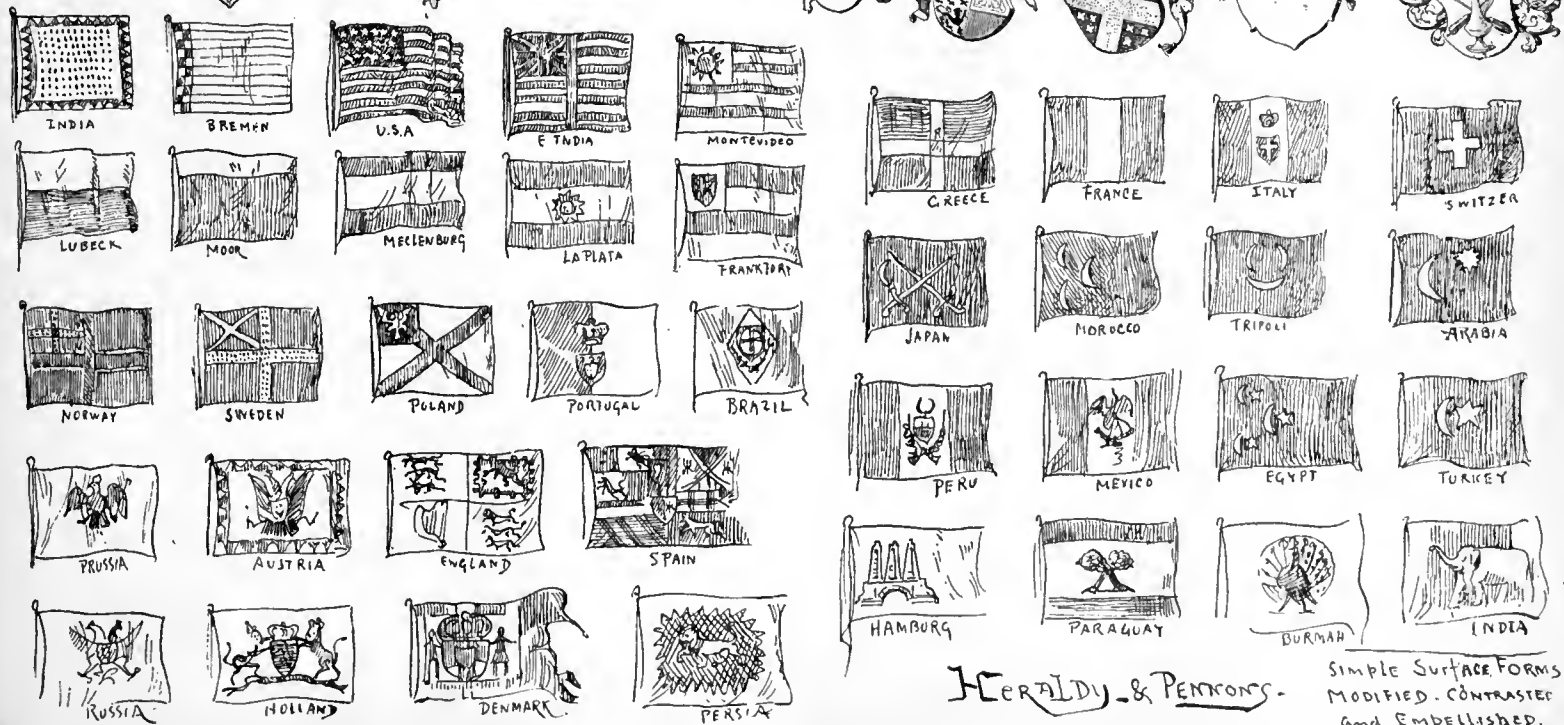 INDIA
BREMEN
U.S.A
E INDIA
MONTEVIDEO
LUBECK
MOOR
MECLENBURG
LA PLATA
FRANKFORT
NORWAY
SWEDEN
POLAND
PORTUGAL
BRAZIL
PRUSSIA
AUSTRIA
ENGLAND
SPAIN
RUSSIA
HOLLAND
DENMARK
PERSIA
GREECE
FRANCE
ITALY
SWITZER
JAPAN
MOROCCO
TRIPOLI
ARABIA
PERU
MEXICO
EGYPT
TURKEY
HAMBURG
PARAGUAY
BURMAH
INDIA
HERALDY & PENNONS.
SIMPLE SURFACE FORMS
MODIFIED. CONTRASTED
and EMBELLISHED.